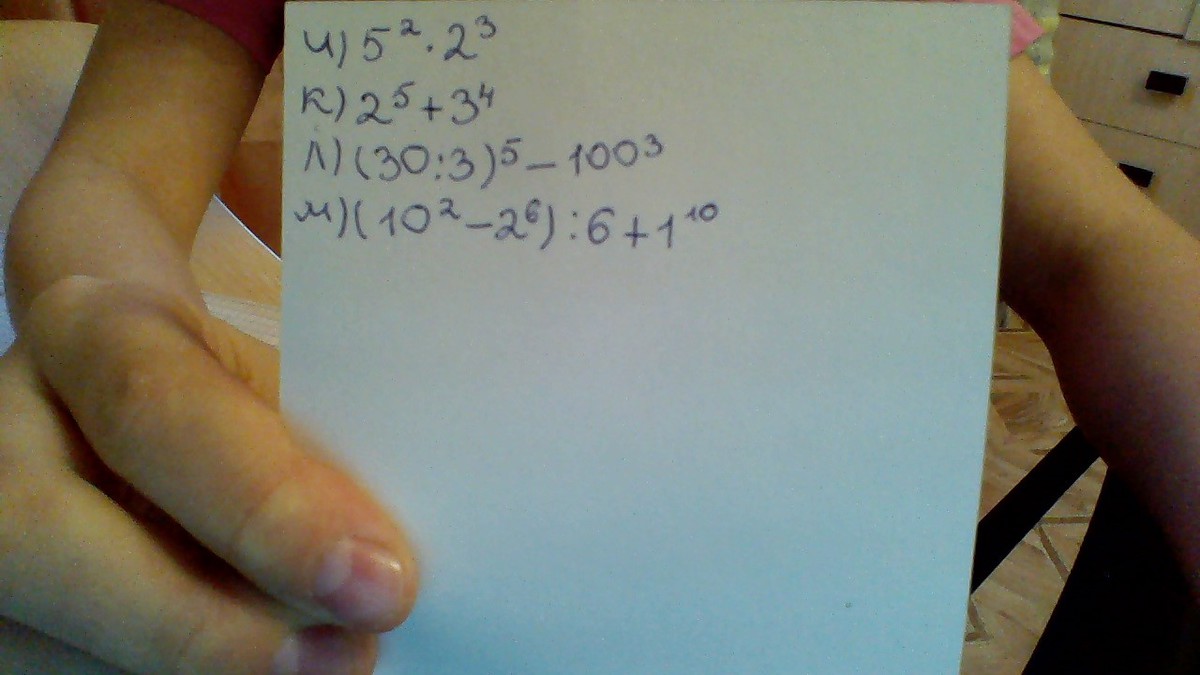 и) 5² · 2³
к) 2⁵ + 3⁴
л) (30:3)⁵ – 100³
м) (10² – 2⁶) : 6 + 1¹⁰